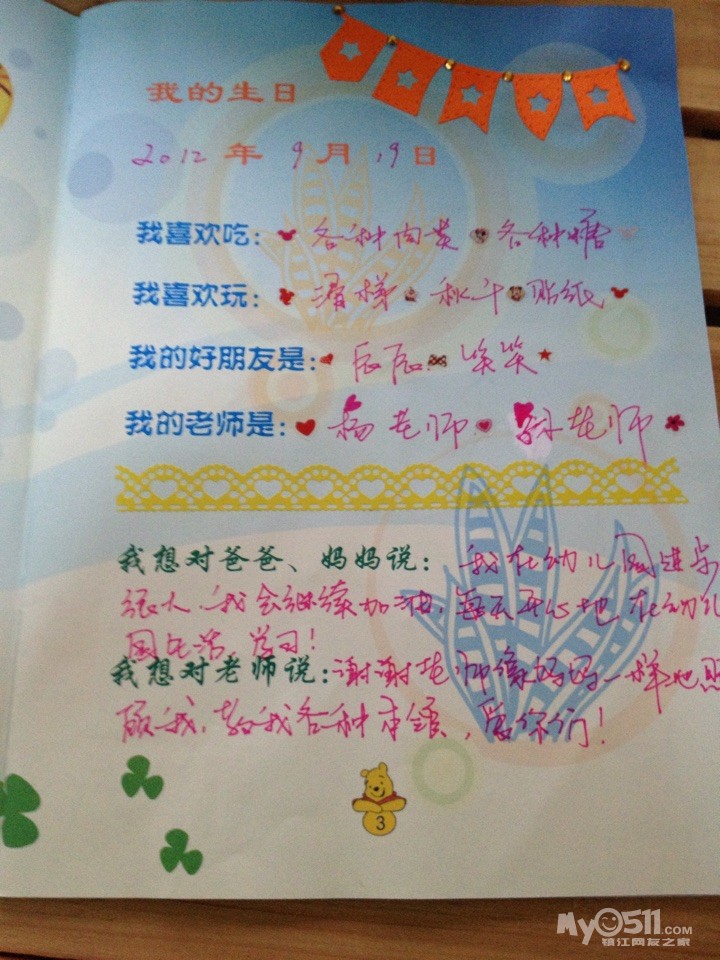 我的生日
2012 年 9 月 19 日
我喜欢吃: 各种肉类 各种糖
我喜欢玩: 滑梯 秋千 贴纸
我的好朋友是: 辰辰 笑笑
我的老师是: 杨老师 孙老师
我想对爸爸、妈妈说: 我在幼儿园进步
很大,我会继续加油,每天开心地在幼儿
园生活、学习!
我想对老师说:谢谢老师像妈妈一样地照
顾我,教我各种本领,爱你们!
3
My0511.COM
镇江网友之家